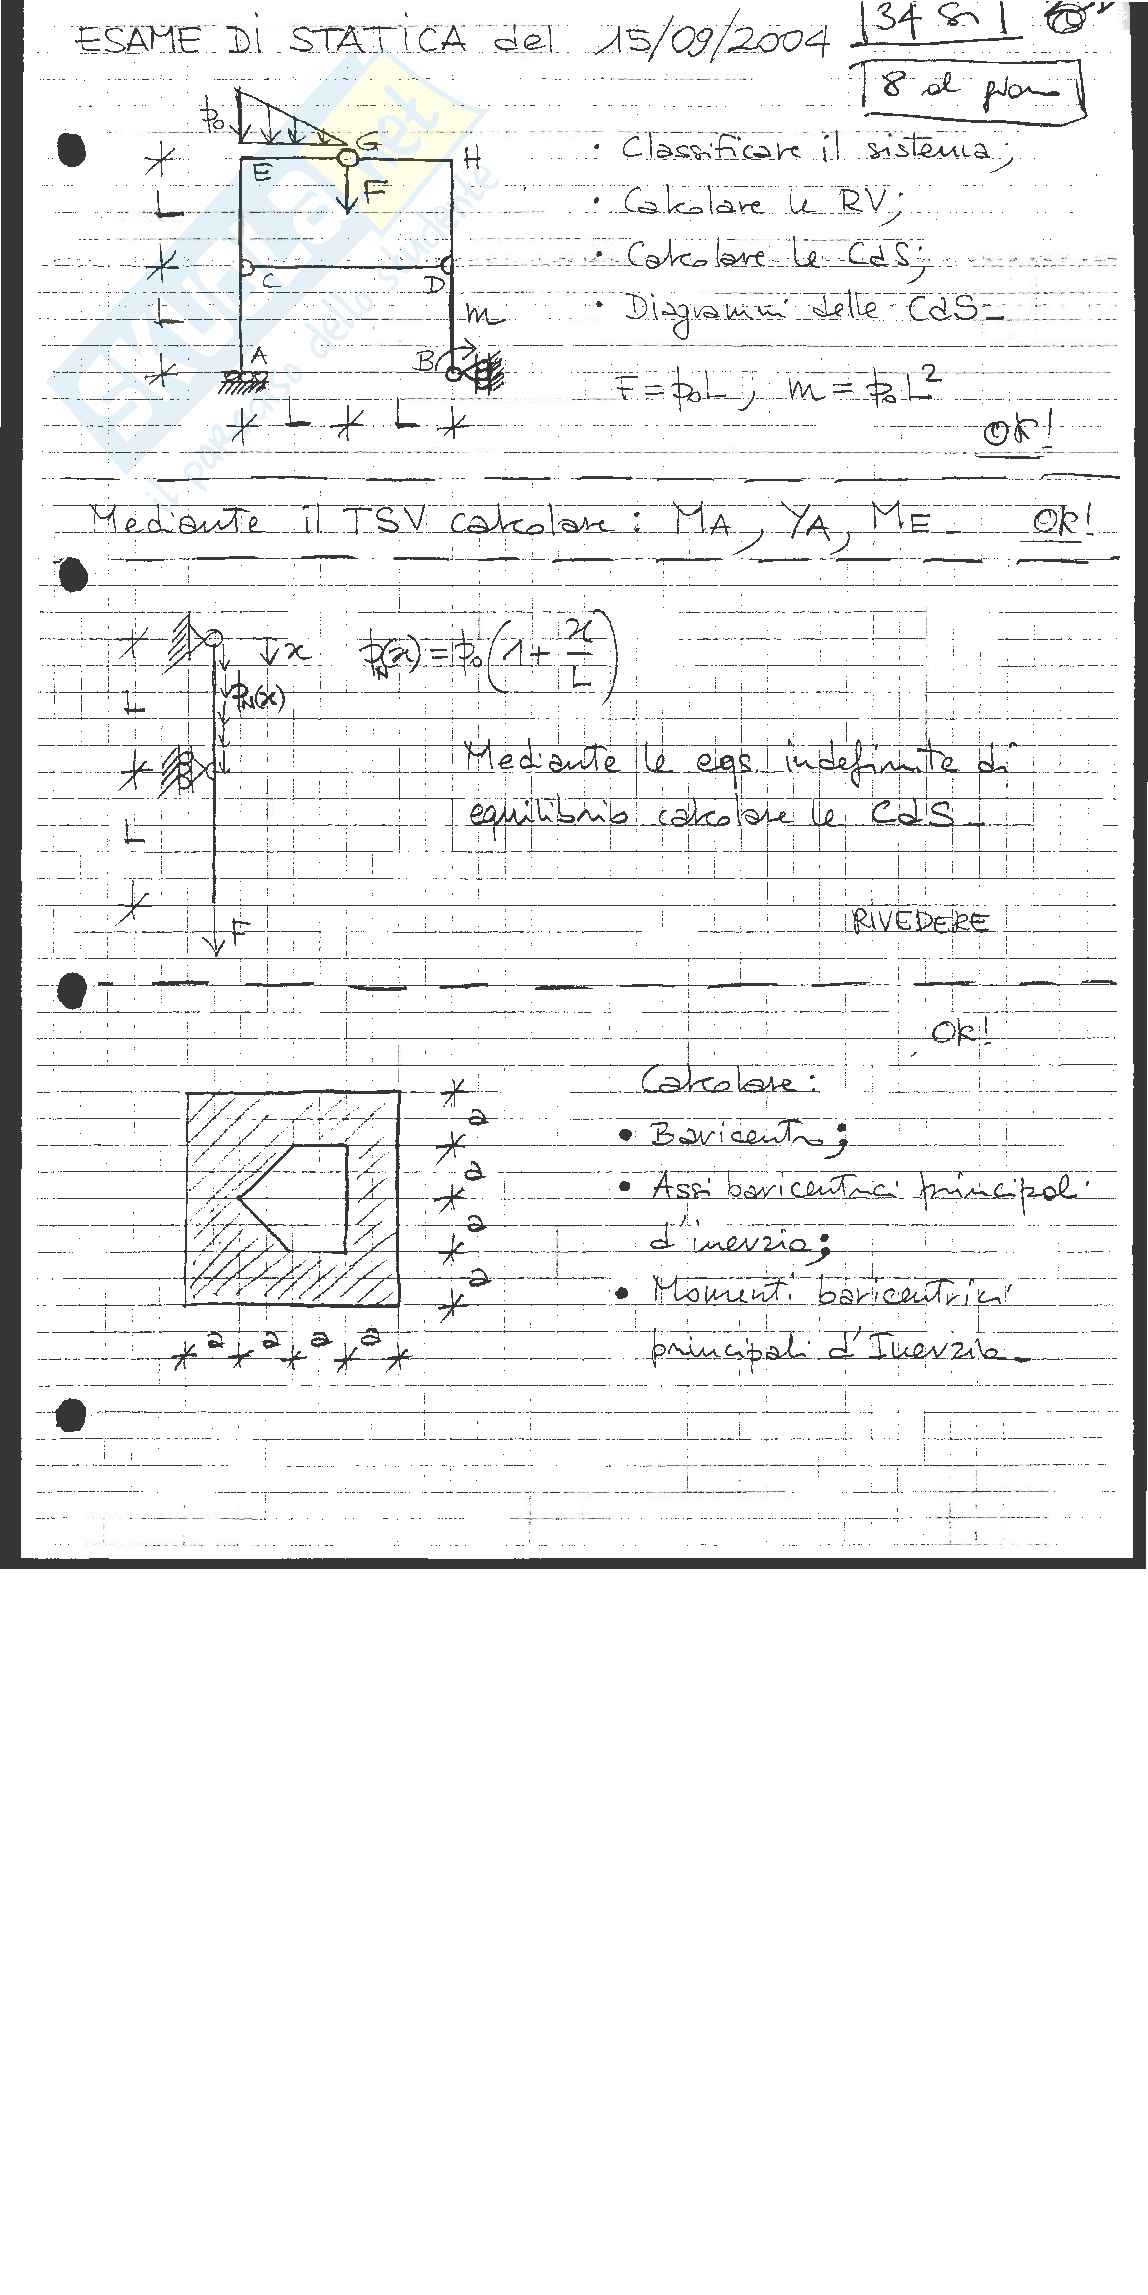 ESAME DI STATICA del 15/09/2004
34 Si
8 al
p₀
G
E
H
F
C
D
m
A
B
L
L
L
L
• Classificare il sistema;
• Calcolare le RV;
• Calcolare le CdS;
• Diagrammi delle CdS
F = p₀L; m = p₀L²
OK!
SKUOLA.net
il paradiso dello studente
Mediante il TSV calcolare: MA, YA, ME OK!
x
pN(x) = p₀(1 + x/L)
L
pN(x)
L
F
Mediante le eqs. indefinite di
equilibrio calcolare le CdS
RIVEDERE
OK!
a
a
a
a
a a a a
Calcolare:
• Baricentro;
• Assi baricentrici principali
d'inerzia;
• Momenti baricentrici
principali d'Inerzia